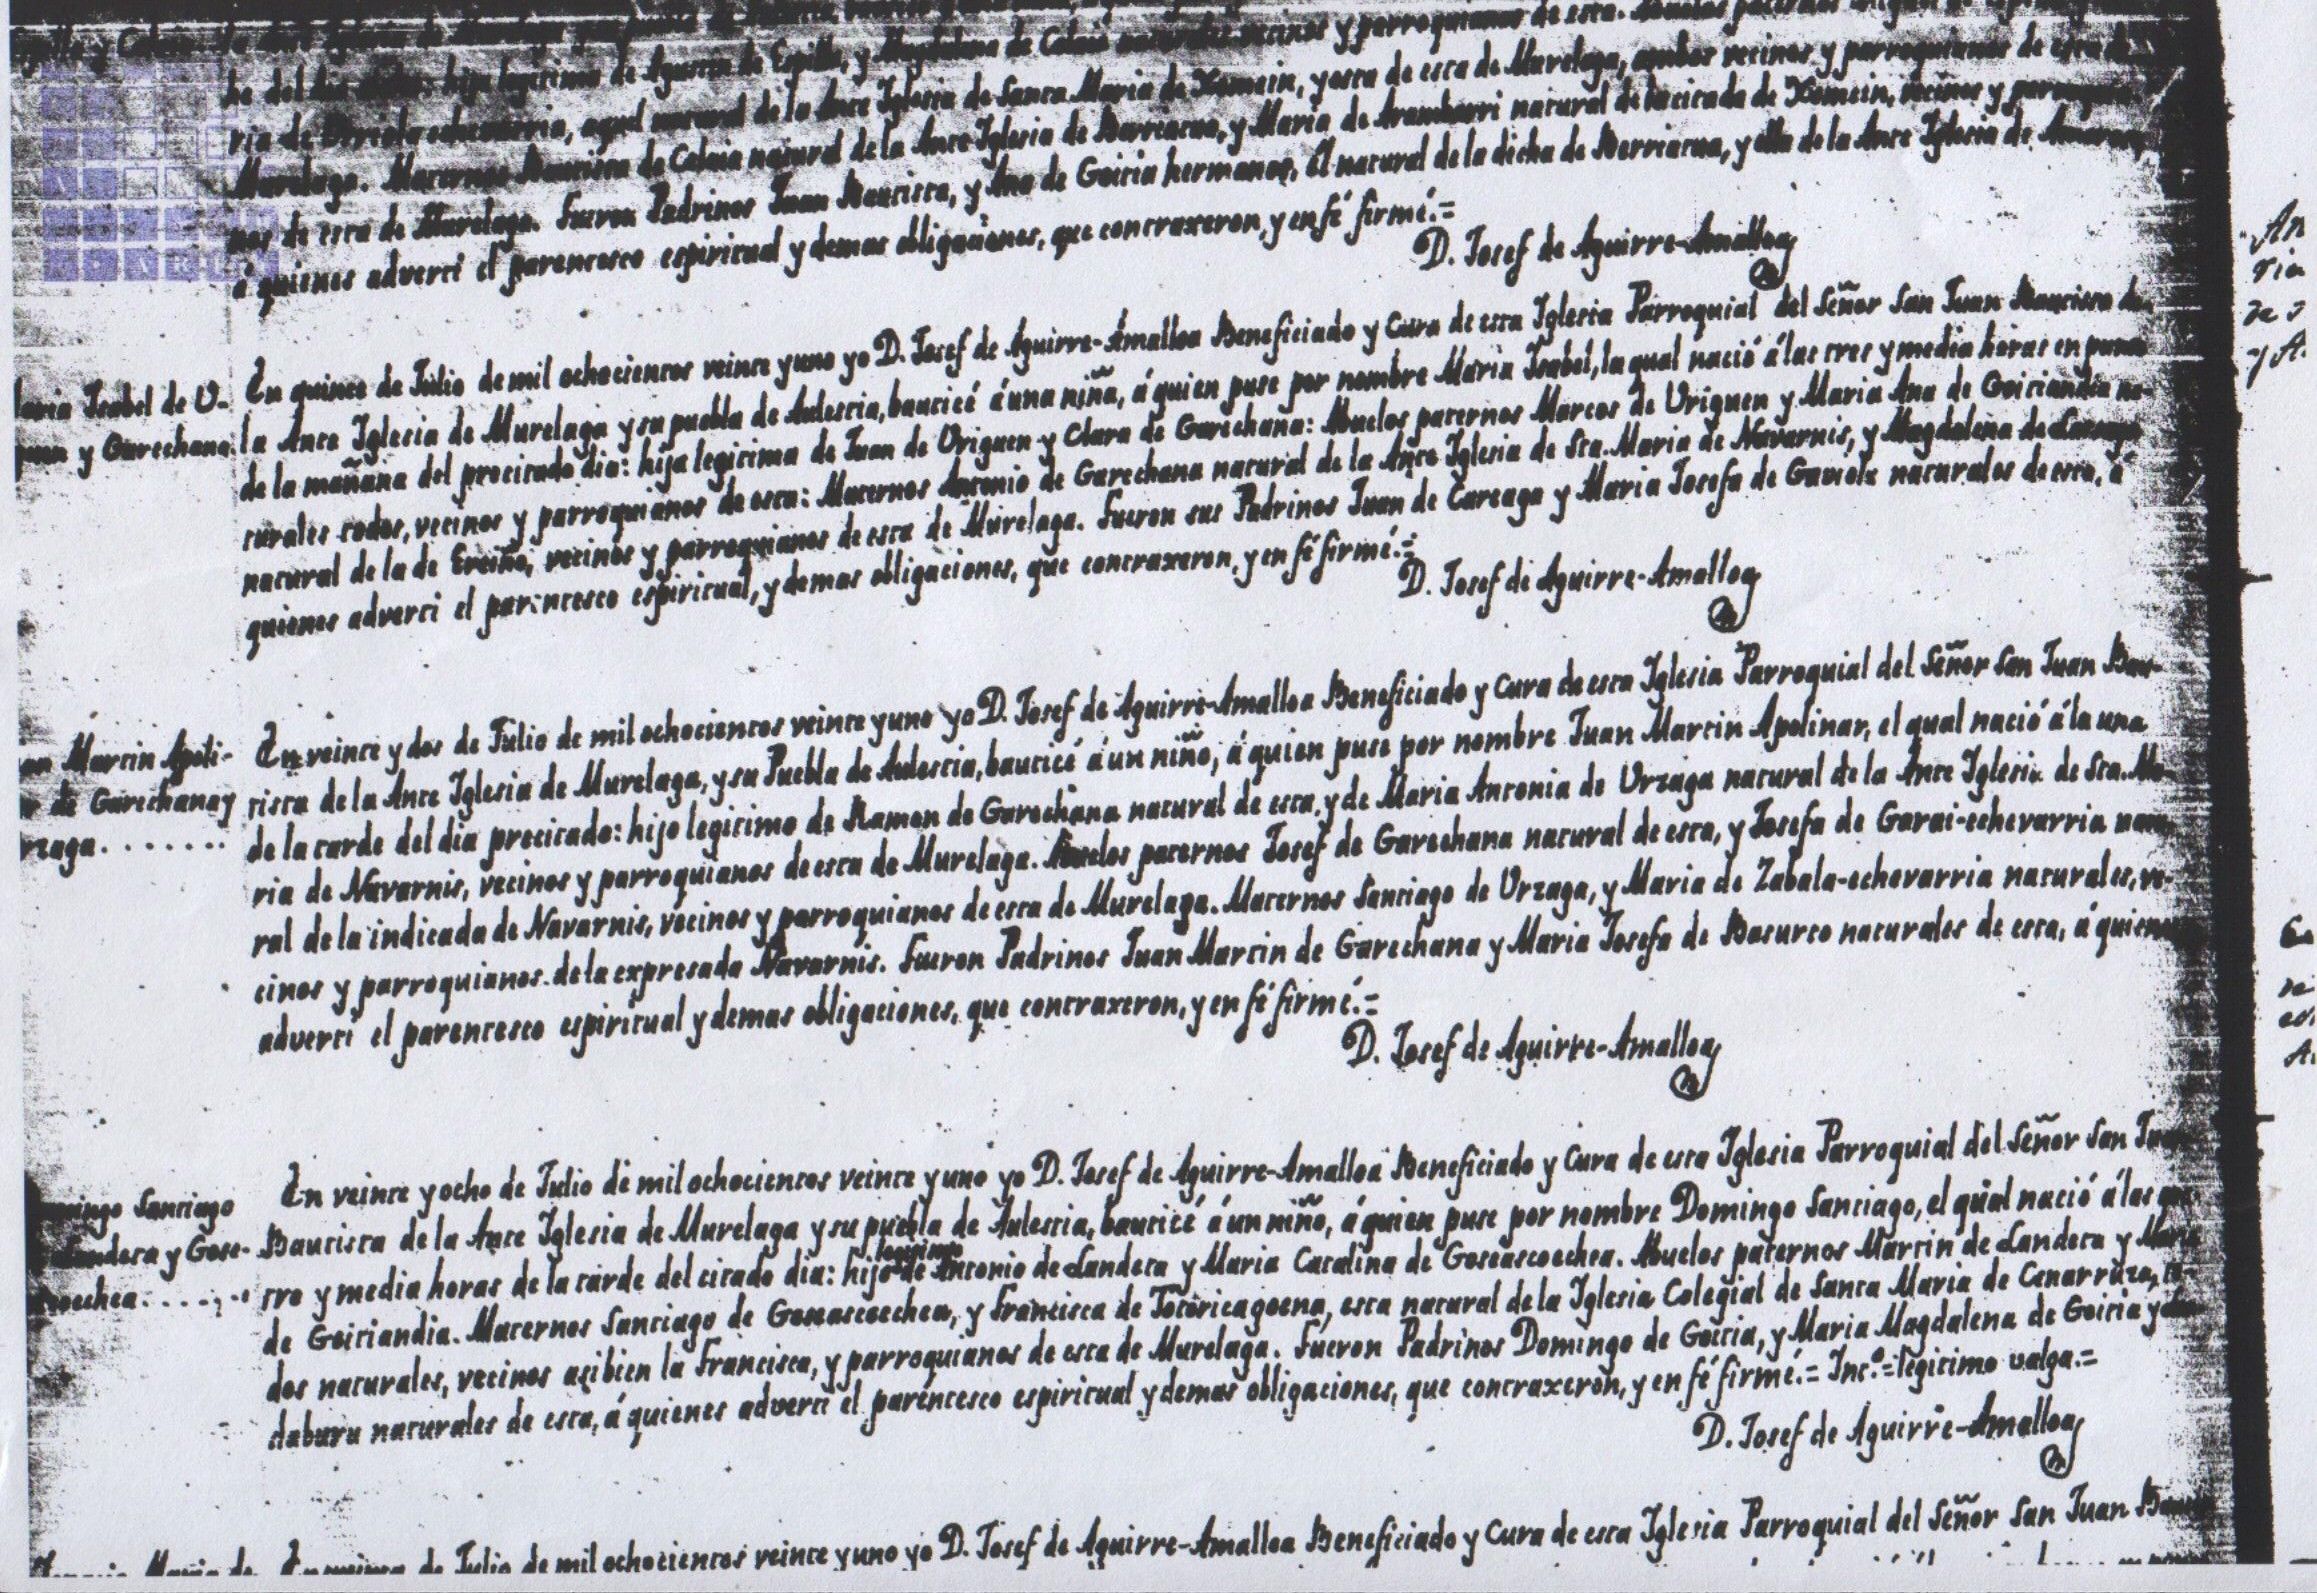 he del dia hija legitima de Agustin de Espilla, y Magdalena de Celaia vecinos y parroquianos de esta. Abuelos paternos
ria de Urriolaechevarria, aquel natural de la Ante Iglesia de Santa Maria de Xemein, y esta de esta de Murelaga, ambos vecinos y parroquianos de esta de
Murelaga. Maternos Bautista de Celaia natural de la Ante Iglesia de Berriatua, y Maria de Aramburri natural de la citada de Xemein, vecinos y parroquia-
nos de esta de Murelaga. Fueron Padrinos Juan Bautista, y Ana de Goitia hermanos, él natural de la dicha de Berriatua, y ella de la Ante Iglesia de
á quienes advertí el parentesco espiritual y demas obligaciones, que contraxeron, y en fé firmé.=
D. Josef de Aguirre-Amalloa
Maria Isabel de U-
En quince de Julio de mil ochocientos veinte y uno yo D. Josef de Aguirre-Amalloa Beneficiado y Cura de esta Iglesia Parroquial del Señor San Juan Bautista de
y Garechana.
la Ante Iglesia de Murelaga y su puebla de Aulestia, bauticé á una niña, á quien puse por nombre Maria Isabel, la qual nació á las tres y media horas en punto
de la mañana del precitado dia: hija legitima de Juan de Uriguen y Clara de Garechana: Abuelos paternos Marcos de Uriguen y Maria Ana de Goiciandia na-
turales todos, vecinos y parroquianos de esta: Maternos Antonio de Garechana natural de la Ante Iglesia de Sta. Maria de Navarnis, y Magdalena de
natural de la de Ereño, vecinos y parroquianos de esta de Murelaga. Fueron sus Padrinos Juan de Careaga y Maria Josefa de Gaviola naturales de esta, á
quienes advertí el parentesco espiritual, y demas obligaciones, que contraxeron, y en fé firmé.=
D. Josef de Aguirre-Amalloa
Martin Apoli-
En veinte y dos de Julio de mil ochocientos veinte y uno yo D. Josef de Aguirre-Amalloa Beneficiado y Cura de esta Iglesia Parroquial del Señor San Juan Bau-
de Garechana y
tista de la Ante Iglesia de Murelaga, y su Puebla de Aulestia, bauticé á un niño, á quien puse por nombre Juan Martin Apolinar, el qual nació á la una
Urzaga.......
de la tarde del dia precitado: hijo legitimo de Ramon de Garechana natural de esta, y de Maria Antonia de Urzaga natural de la Ante Iglesia de Sta. Ma-
ria de Navarnis, vecinos y parroquianos de esta de Murelaga. Abuelos paternos Josef de Garechana natural de esta, y Josefa de Garai-echevarria natu-
ral de la indicada de Navarnis, vecinos y parroquianos de esta de Murelaga. Maternos Santiago de Urzaga, y Maria de Zabala-echevarria naturales, ve-
cinos y parroquianos de la expresada Navarnis. Fueron Padrinos Juan Martin de Garechana y Maria Josefa de Basurto naturales de esta, á quienes
advertí el parentesco espiritual y demas obligaciones, que contraxeron, y en fé firmé.=
D. Josef de Aguirre-Amalloa
Domingo Santiago
En veinte y ocho de Julio de mil ochocientos veinte y uno yo D. Josef de Aguirre-Amalloa Beneficiado y Cura de esta Iglesia Parroquial del Señor San Juan
Landeta y Gose-
Bautista de la Ante Iglesia de Murelaga y su puebla de Aulestia, bauticé á un niño, á quien puse por nombre Domingo Santiago, el qual nació á las qua-
legitimo
tro y media horas de la tarde del citado dia: hijo de Antonio de Landeta y Maria Catalina de Goseascoechea. Abuelos paternos Martin de Landeta y Maria
de Goiciandia. Maternos Santiago de Goseascoechea, y Francisca de Totoricagoena, esta natural de la Iglesia Colegial de Santa Maria de Cenarruza, to-
dos naturales, vecinos asibien la Francisca, y parroquianos de esta de Murelaga. Fueron Padrinos Domingo de Goitia, y Maria Magdalena de Goitia y
daburu naturales de esta, á quienes advertí el parentesco espiritual y demas obligaciones, que contraxeron, y en fé firmé.= Int.º=legitimo valga.=
D. Josef de Aguirre-Amalloa
de Julio de mil ochocientos veinte y uno yo D. Josef de Aguirre-Amalloa Beneficiado y Cura de esta Iglesia Parroquial del Señor San Juan